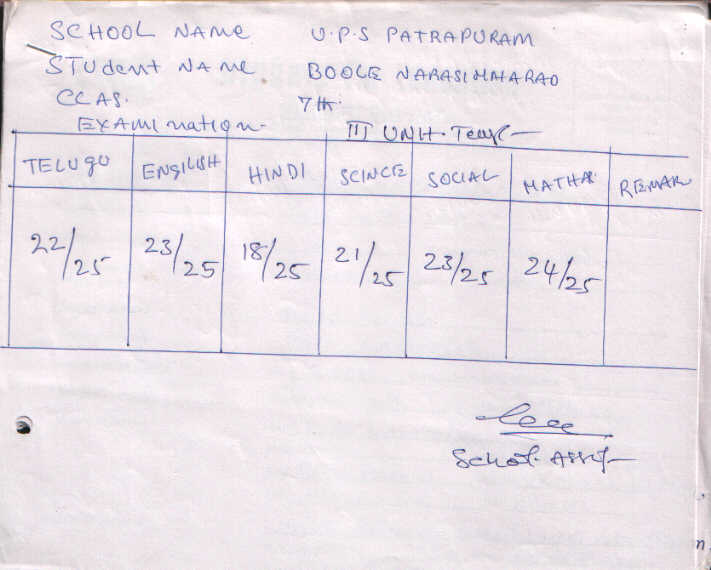 SCHOOL NAME U.P.S PATRAPURAM
STUdent NAME BOOLE NARASIMHARAO
CLAS. 7th.
EXAMInation- III UNIt.
TELUGU ENGILISH HINDI SCINCE SOCIAL MATHA REMAR
22/25 23/25 18/25 21/25 23/25 24/25
School. Assit
n